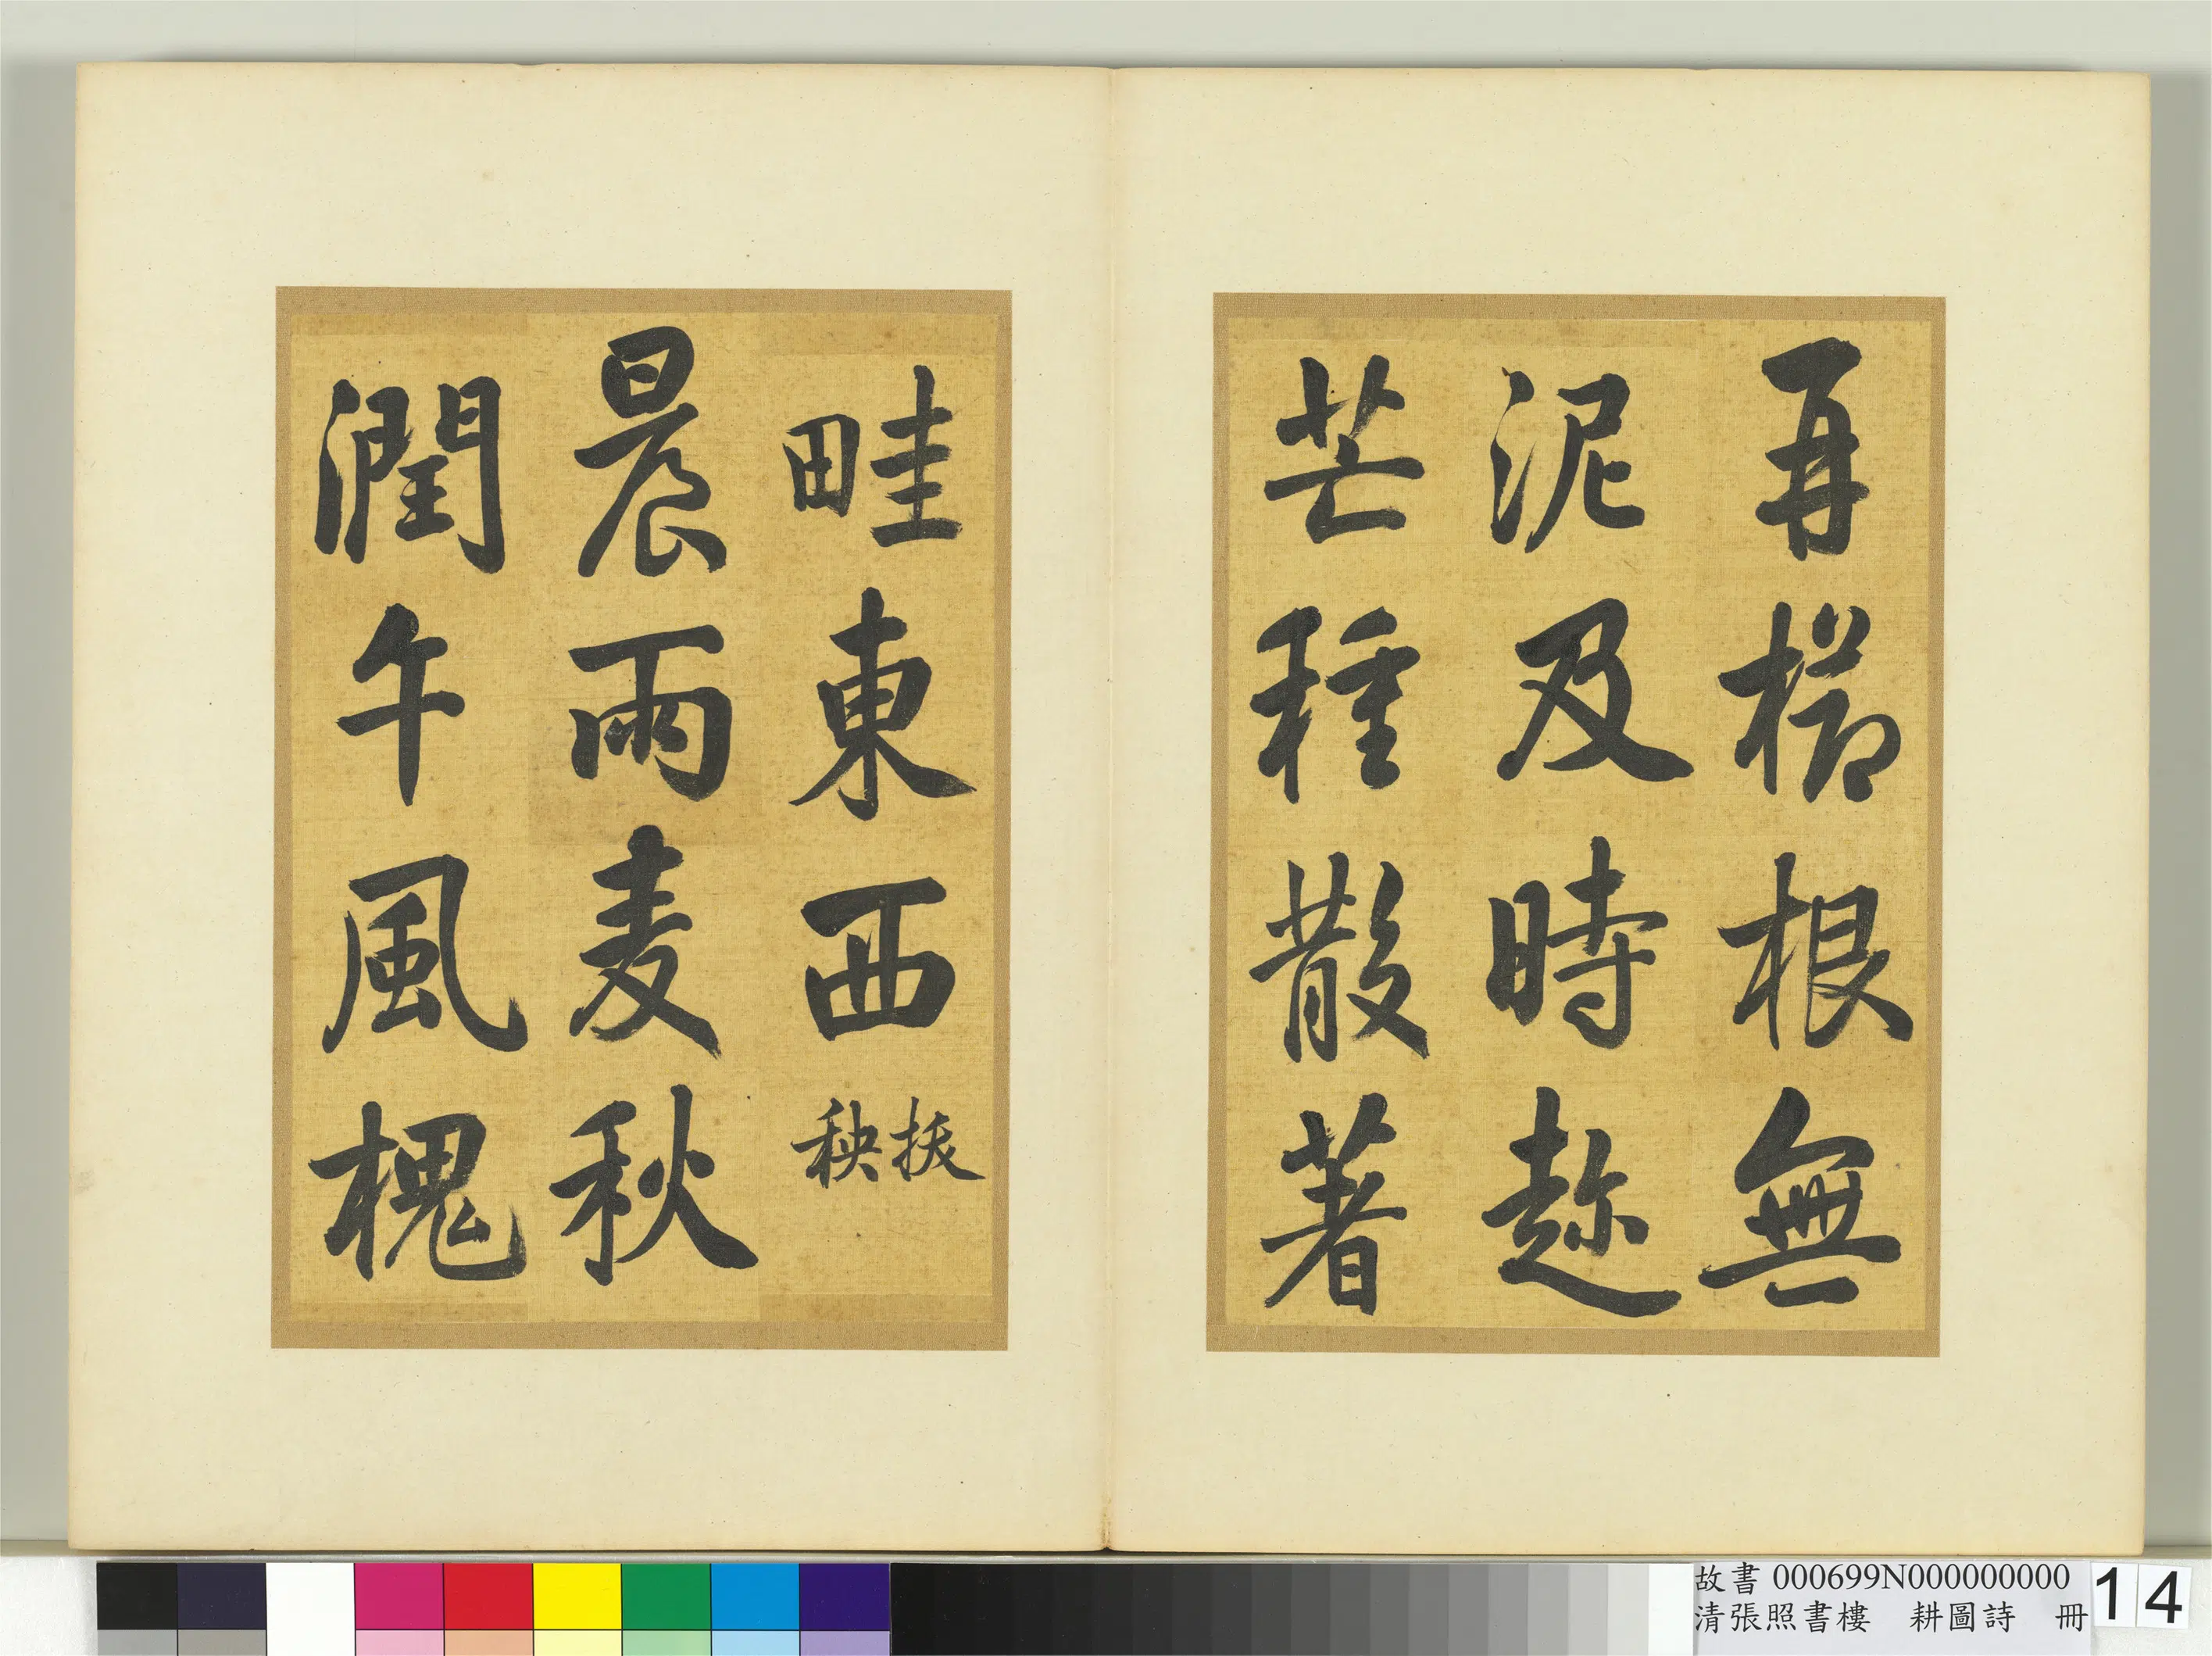 再櫛根無
泥及時趂
芒種散著
畦東西拔
秧
晨雨麦秋
潤午風槐
故書 000699N000000000
清張照書樓　耕圖詩　冊
14